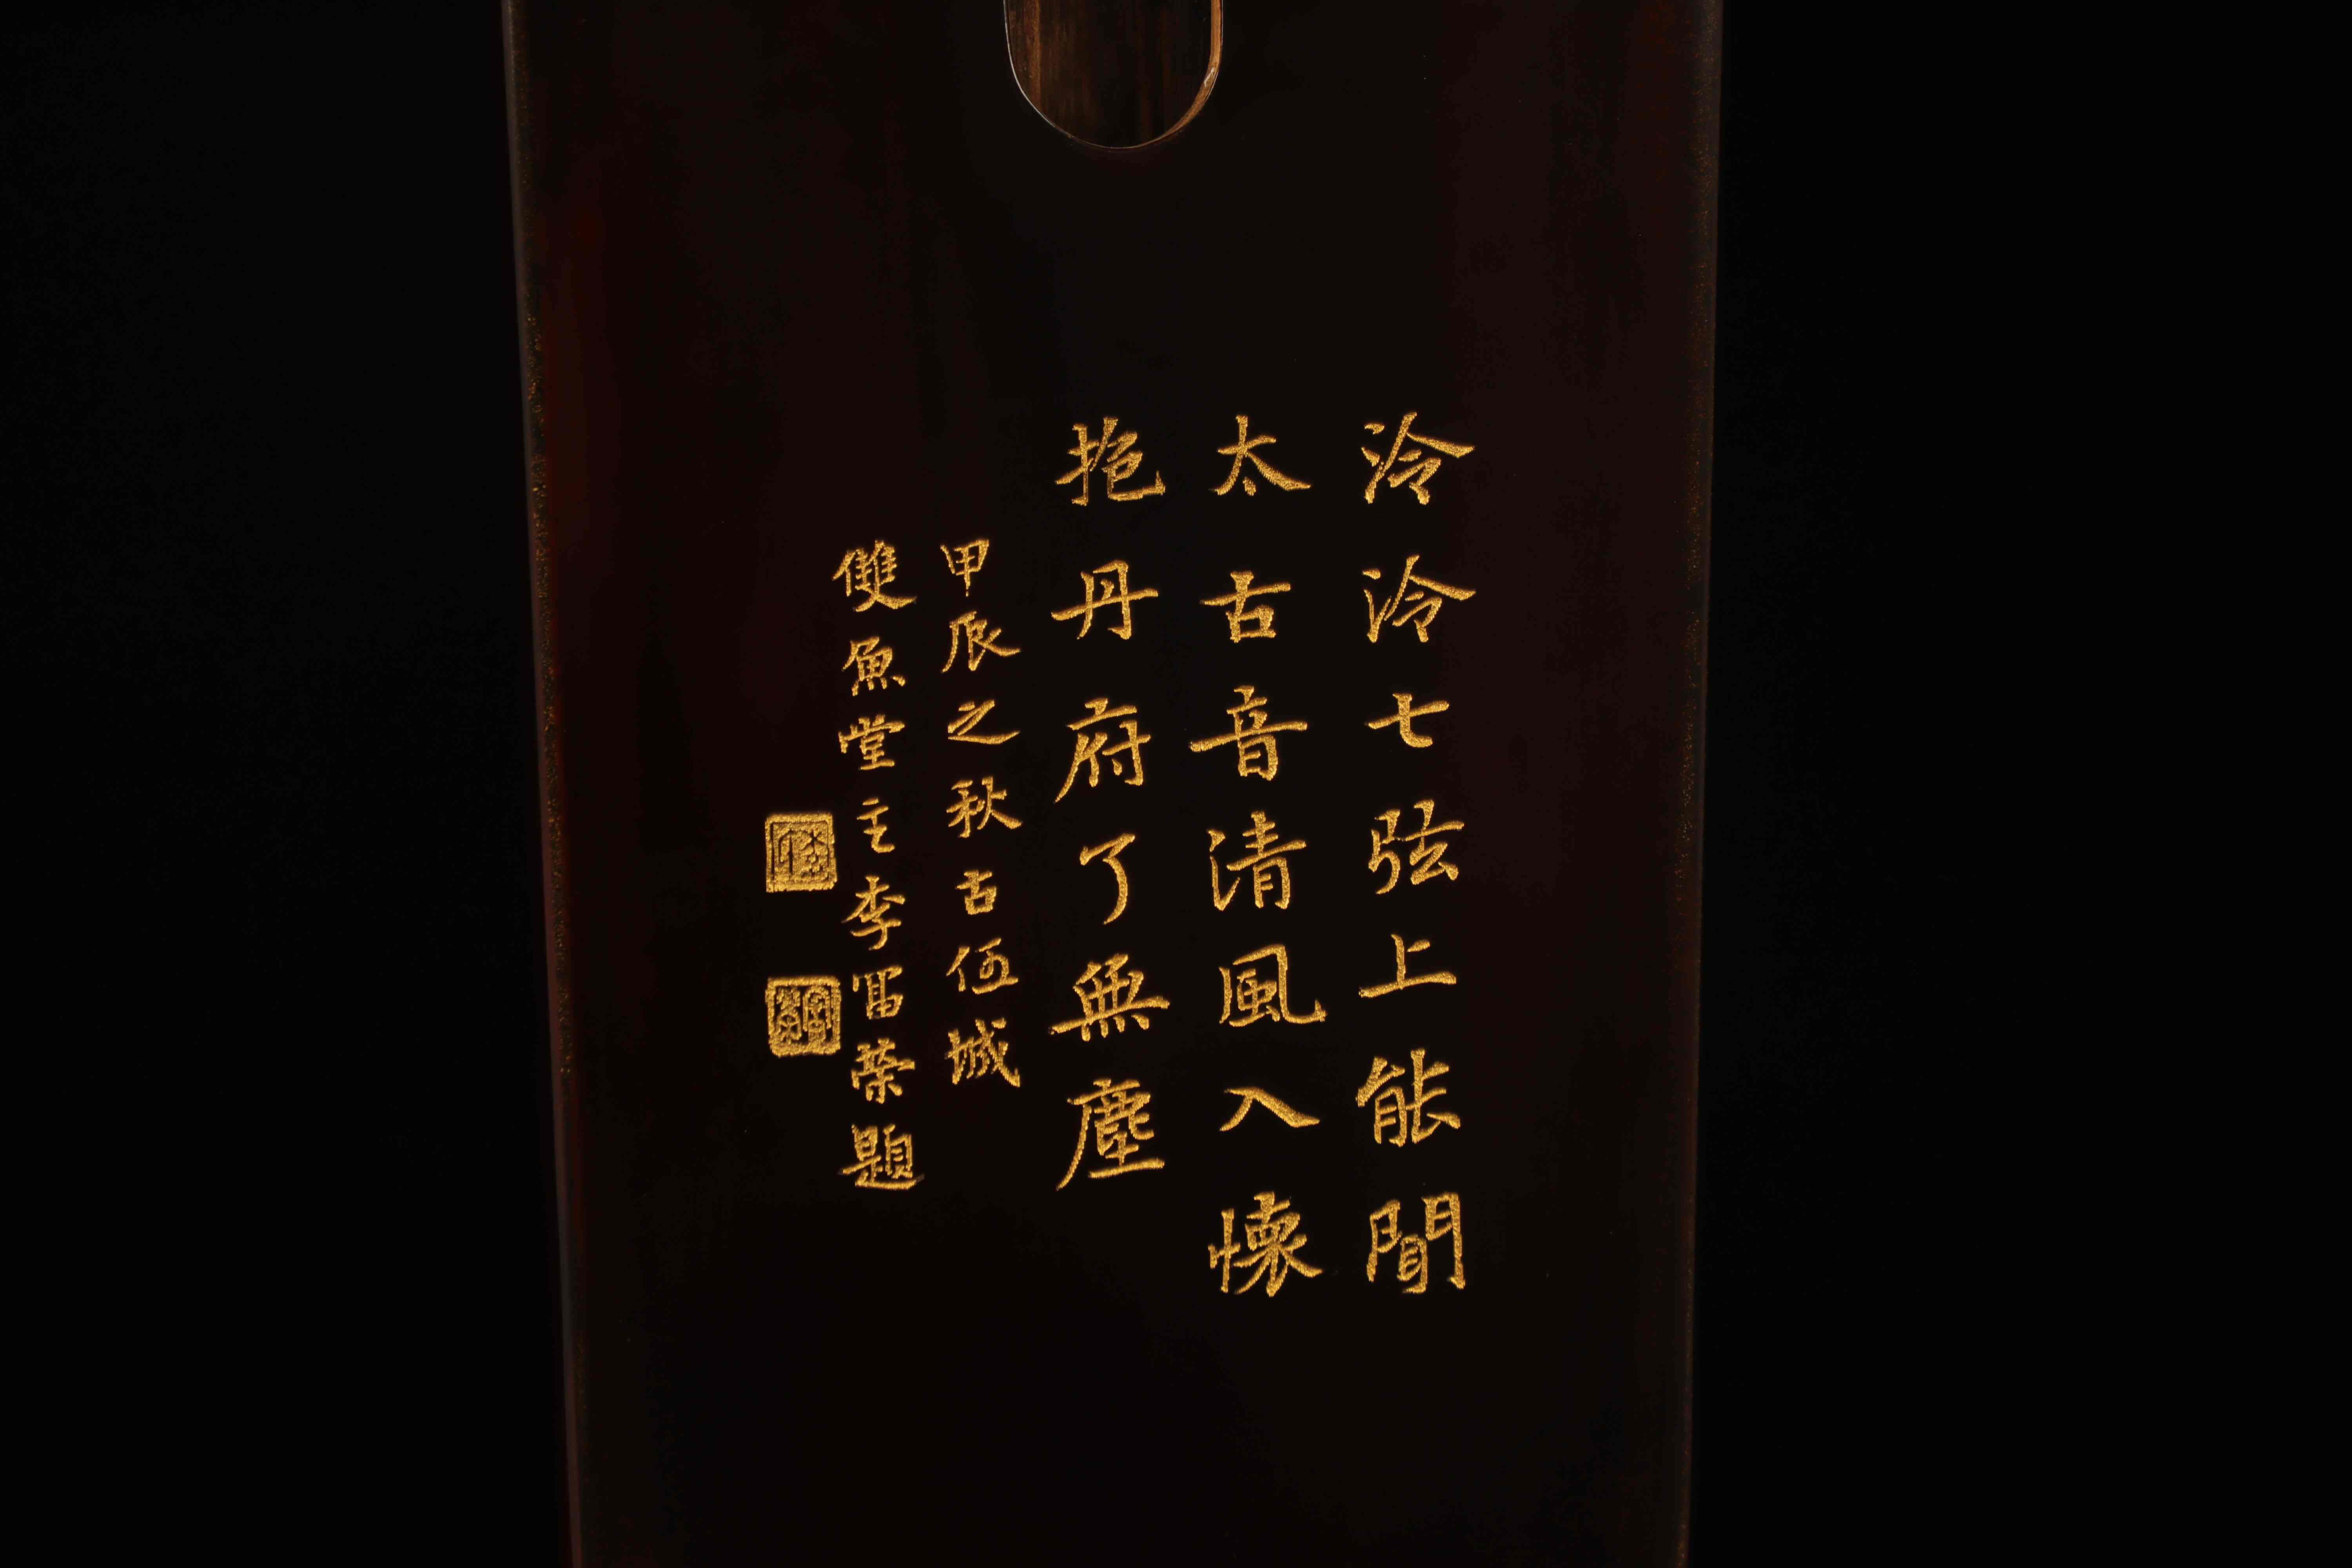 泠泠七弦上能聞
太古音清風入懷
抱丹府了無塵
甲辰之秋古伍城
雙魚堂主李冨榮題